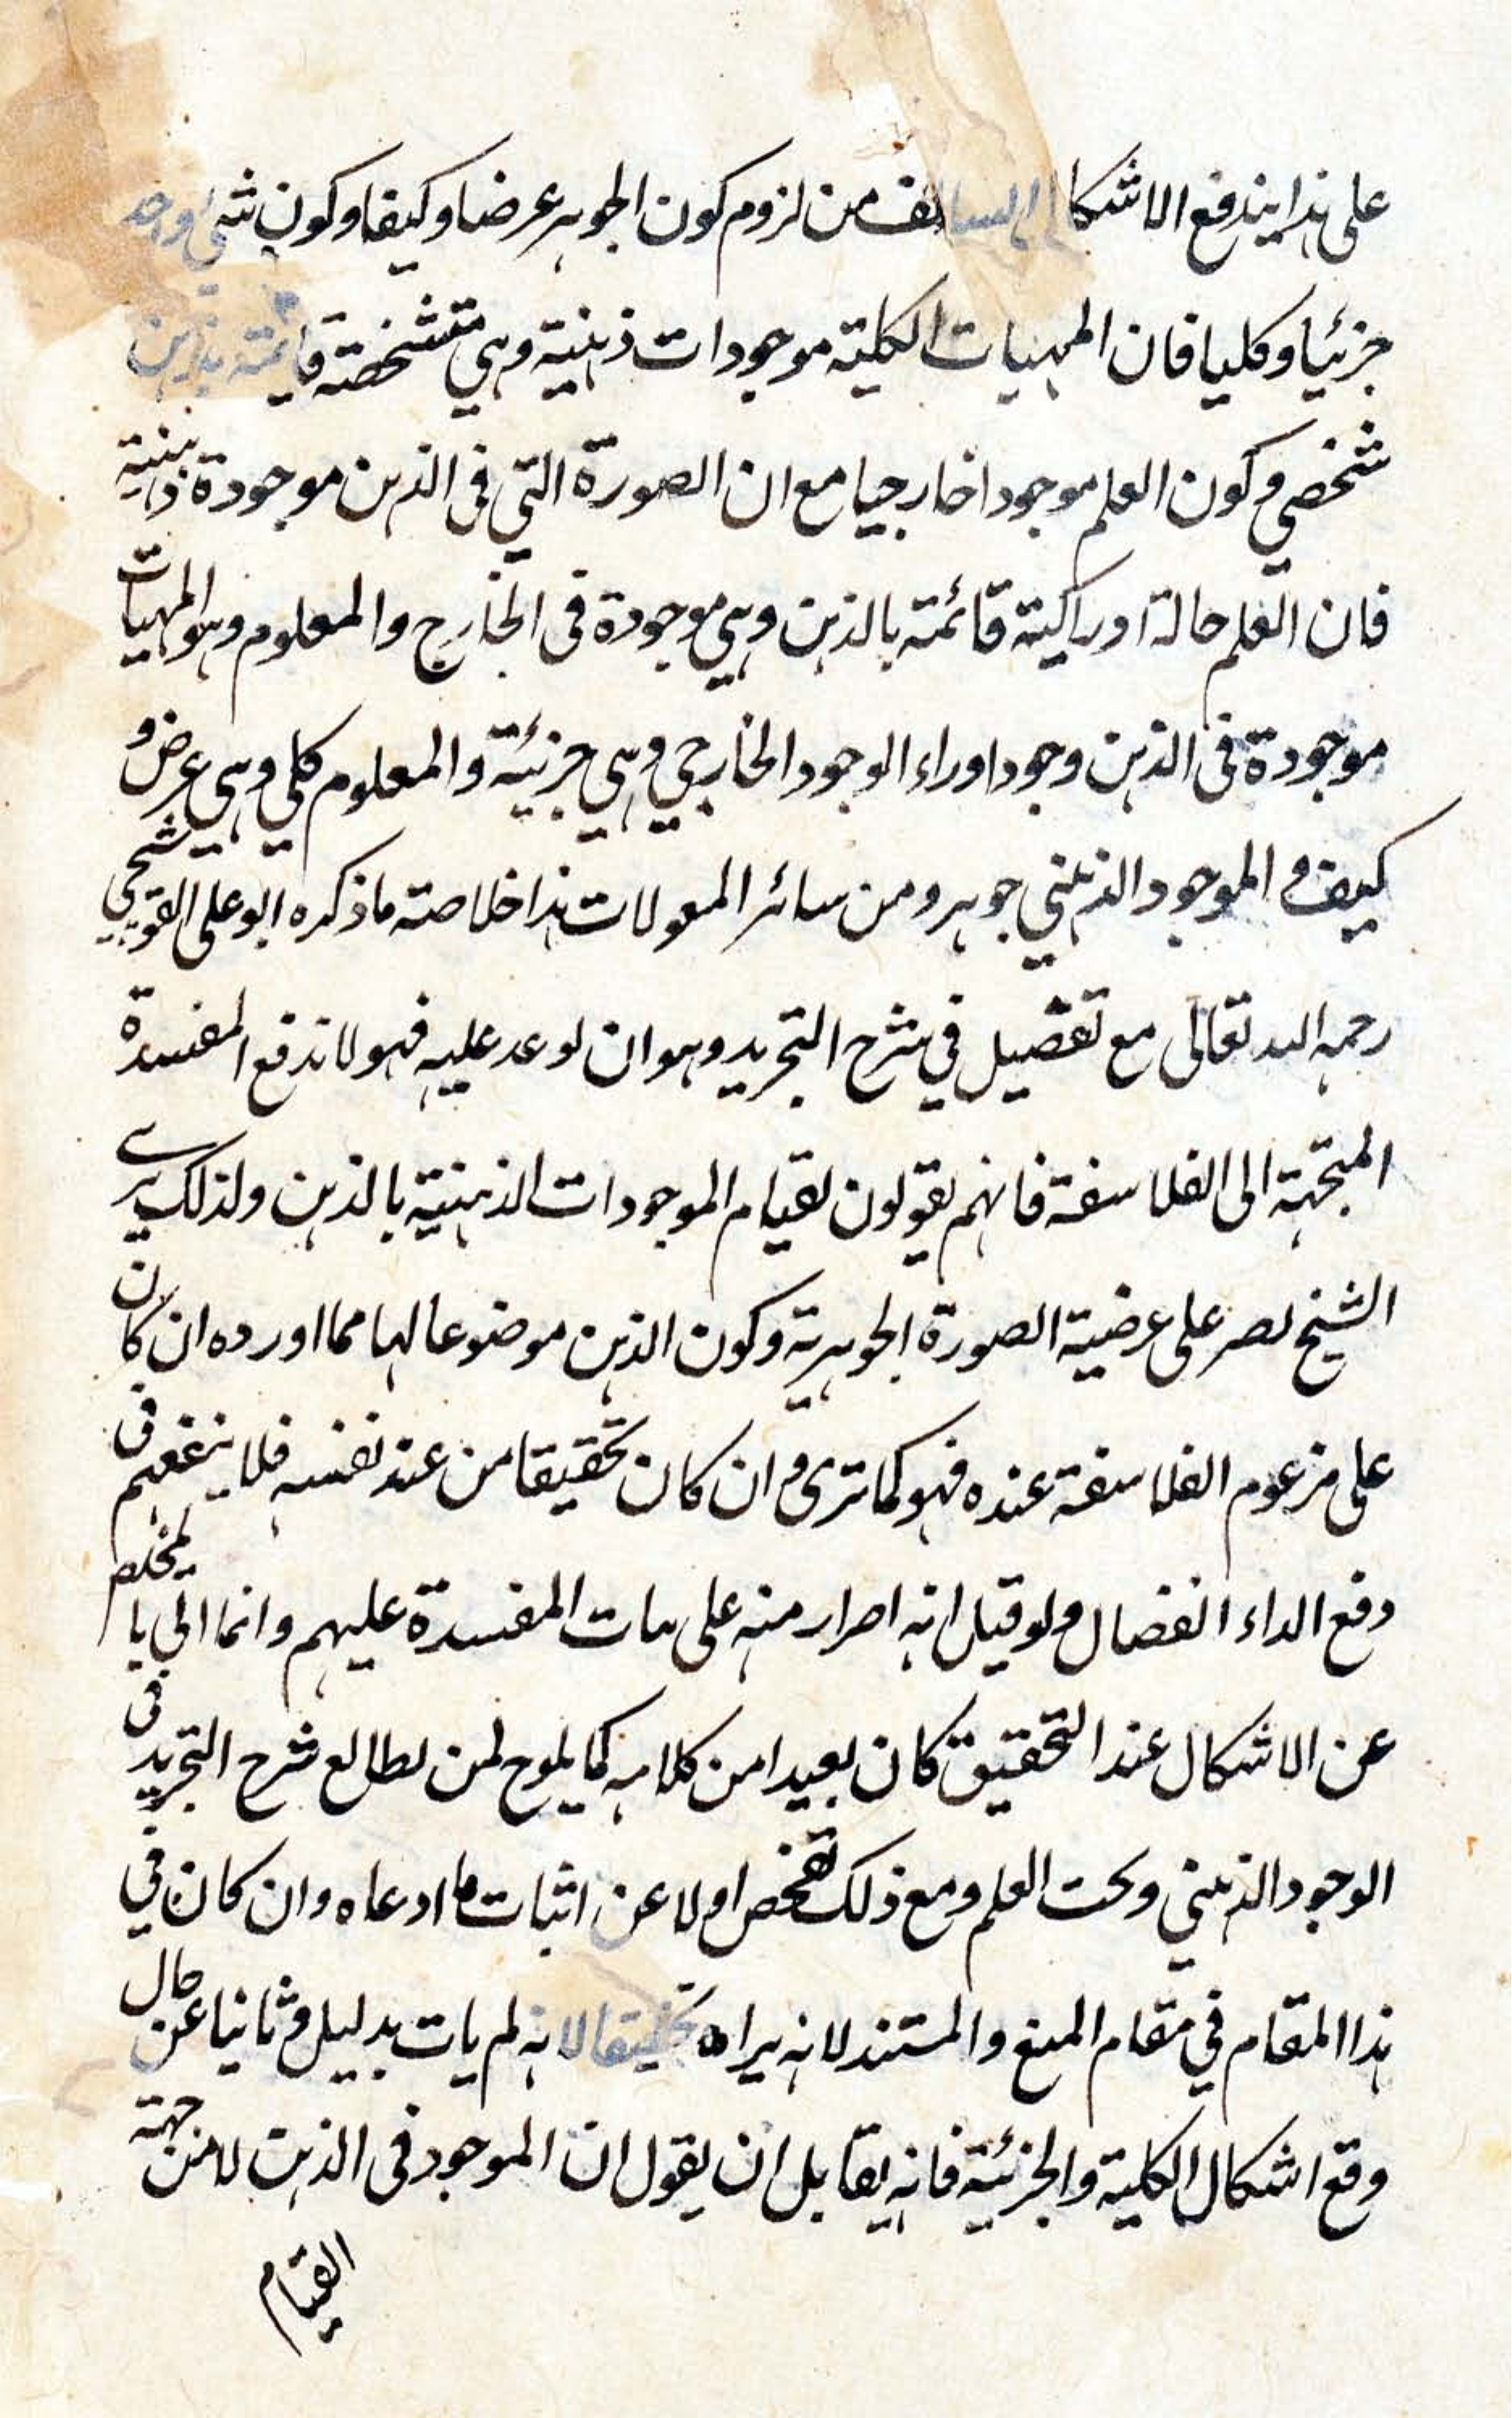 على هذا يندفع الاشكال السالف من لزوم كون الجوهر عرضا وكيفا وكون شئ واحد
جزئيا وكليا فان المهيات الكلية موجودات ذهنية وهي متشخصة قائمة بذهن
شخصي وكون العلم موجودا خارجيا مع ان الصورة التي في الذهن موجودة ذهنية
فان العلم حالة ادراكية قائمة بالذهن وهي موجودة في الخارج والمعلوم وهو المهيات
موجودة في الذهن وجودا وراء الوجود الخارجي وهي جزئية والمعلوم كلي وهي عرض و
كيف و الموجود الذهني جوهر ومن سائر المعولات هذا خلاصة ما ذكره ابو علي القوشجي
رحمه الله تعالى مع تفصيل في شرح التجريد وهو ان لو عد عليه فهو لا ندفع المفسدة
المتجهة الى الفلاسفة فانهم يقولون بقيام الموجودات الذهنية بالذهن ولذلك يرى
الشيخ يصر على عرضية الصورة الجوهرية وكون الذهن موضوعا لها مما اورده ان كان
على مزعوم الفلاسفة عنده فهو كما ترى و ان كان تحقيقا من عند نفسه فلا ينفعهم في
دفع الداء العضال ولو قيل انه اصرار منه على هات المفسدة عليهم وانما الي يا لمخلص
عن الاشكال عند التحقيق كان بعيدا من كلامه كما يلوح لمن يطالع شرح التجريد في
الوجود الذهني وبحث العلم ومع ذلك نفحص اولا عن اثبات ما ادعاه وان كان في
هذا المقام في مقام المنع والمستند لانه يراه تحقيقا لانه لم يات بدليل و ثانيا عن حال
وقع اشكال الكلية والجزئية فانه يقابل ان يقول ان الموجود في الذهن لا من جهة
القيام